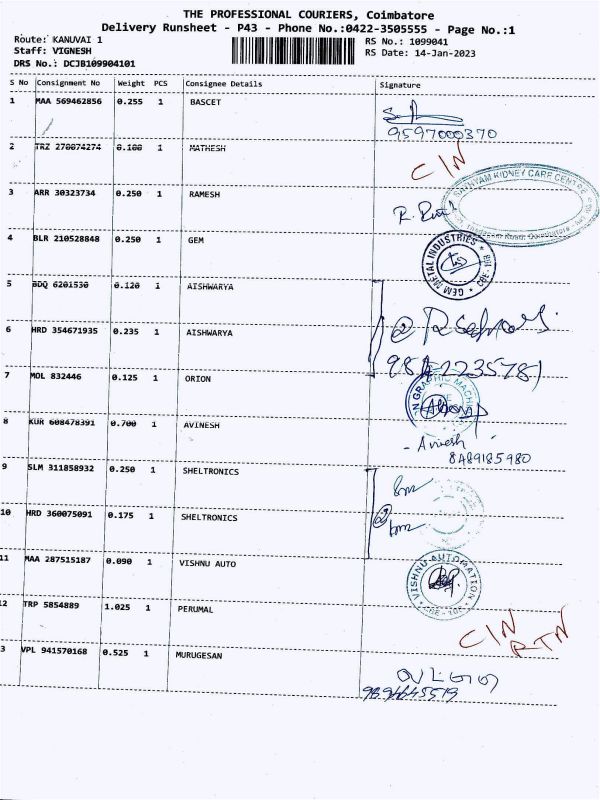 THE PROFESSIONAL COURIERS, Coimbatore
Delivery Runsheet - P43 - Phone No.:0422-3505555 - Page No.:1
Route: KANUVAI 1 RS No.: 1099041
Staff: VIGNESH RS Date: 14-Jan-2023
DRS No.: DCJB109904101
S No Consignment No Weight PCS Consignee Details Signature
1 MAA 569462856 0.255 1 BASCET
9597000370
2 TRZ 270074274 0.100 1 MATHESH C/N
SANNYAM KIDNEY CARE CENTRE
3 ARR 30323734 0.250 1 RAMESH
4 BLR 210528848 0.250 1 GEM GEM METAL INDUSTRIES
5 BDQ 6201530 0.120 1 AISHWARYA
6 HRD 354671935 0.235 1 AISHWARYA
7 MOL 832446 0.125 1 ORION
8 KUR 608478391 0.700 1 AVINESH
- Avinesh
8489185980
9 SLM 311858932 0.250 1 SHELTRONICS
10 HRD 360075091 0.175 1 SHELTRONICS
11 MAA 287515187 0.090 1 VISHNU AUTO VISHNU AUTOMATION
12 TRP 5854889 1.025 1 PERUMAL C/N
RTN
3 VPL 941570168 0.525 1 MURUGESAN